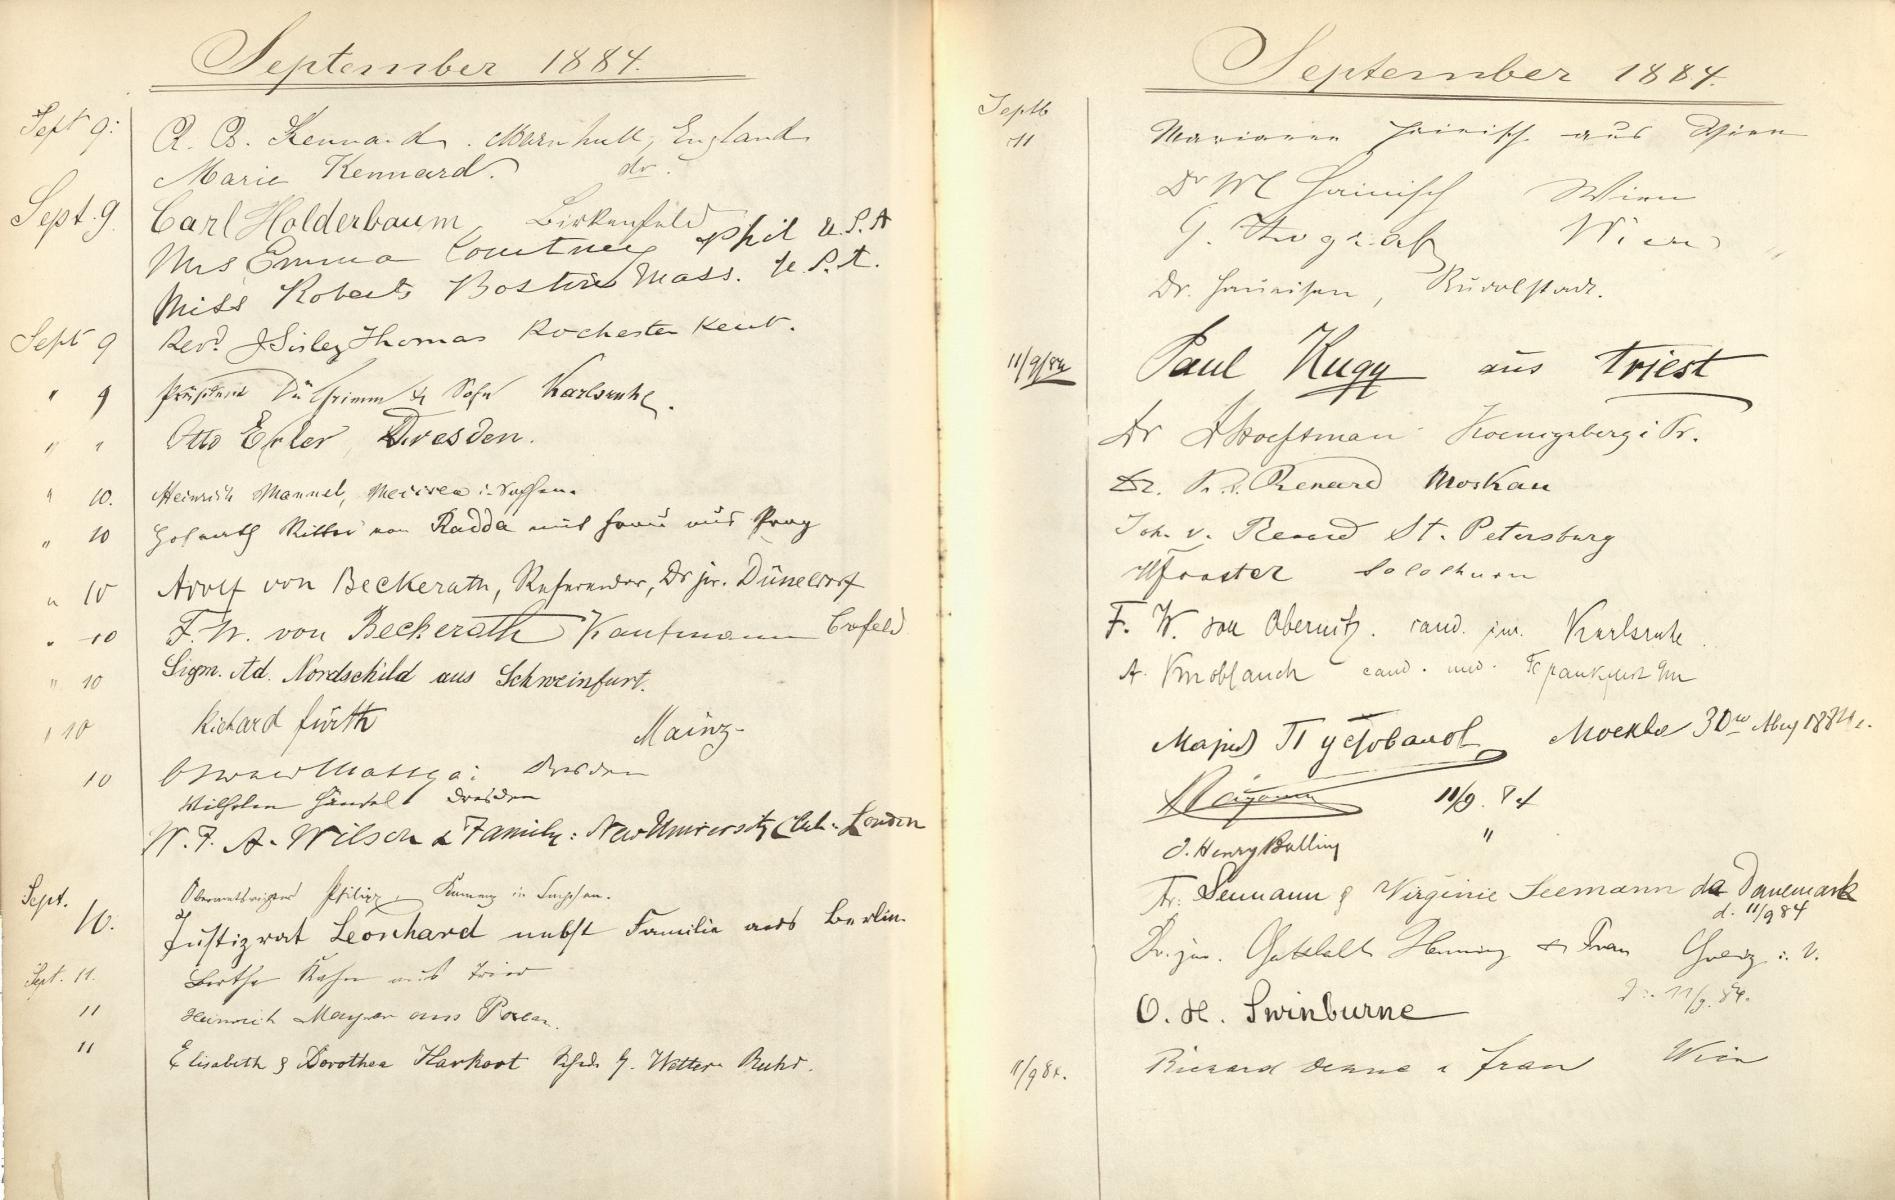 September 1884.
Sept 9: R. B. Kennard. Marnhull, England
Marie Kennard. do.
Sept. 9. Carl Holderbaum, Birkenfeld
Mrs Emma Courtney Phil U.S.A
Miss Roberts Boston Mass. U.S.A.
Sept 9 Revd. J Sisley Thomas Rochester Kent.
" 9 Karlsruhe.
" " Otto Erler, Dresden.
" 10. Heinrich i. Sachsen.
" 10 Hofrath Ritter von Radda mit Frau aus Prag
" 10 Adolf von Beckerath, Referendar, Dr jur. Düsseldorf
" 10 F. W. von Beckerath Kaufmann Crefeld
" 10 Sigm. Ad. Nordschild aus Schweinfurt.
" 10 Richard Fürth Mainz
10 Dresden
Wilhelm Händel Dresden
W. F. A. Wilson & Family: New University Club. London
Sept. Oberamtsrichter Philipp, Kamenz in Sachsen.
10. Justizrat Leonhard nebst Familie aus Berlin.
Sept. 11. Berthe Kahn aus Trier
11 Heinrich Mayer aus Posen.
11 Elisabeth & Dorothea Harkort Wetter Ruhr.
September 1884.
Septb
11 Marianne Hainisch aus Wien
Dr M Hainisch Wien
G. Wien
Dr. Rudolstadt.
11/9/84 Paul Kugy aus Triest
Dr Hoeftman Koenigsberg i Pr.
Dr. Renard Moskau
Joh. v. Renard St. Petersburg
Solothurn
F. W. von Obernitz. cand. jur. Karlsruhe.
A. Knoblauch cand. med. Frankfurt a/m
Пустовалов Москва 30го Авг 1884 г.
11/9. 84
J. Henry Balling "
Fr. Seemann & Virginie Seemann da Danemark
d. 11/9 84
Dr. jur. Henning & Frau Greiz i. V.
d. 11/9. 84.
O. H. Swinburne
11/9 84. Richard & Frau Wien